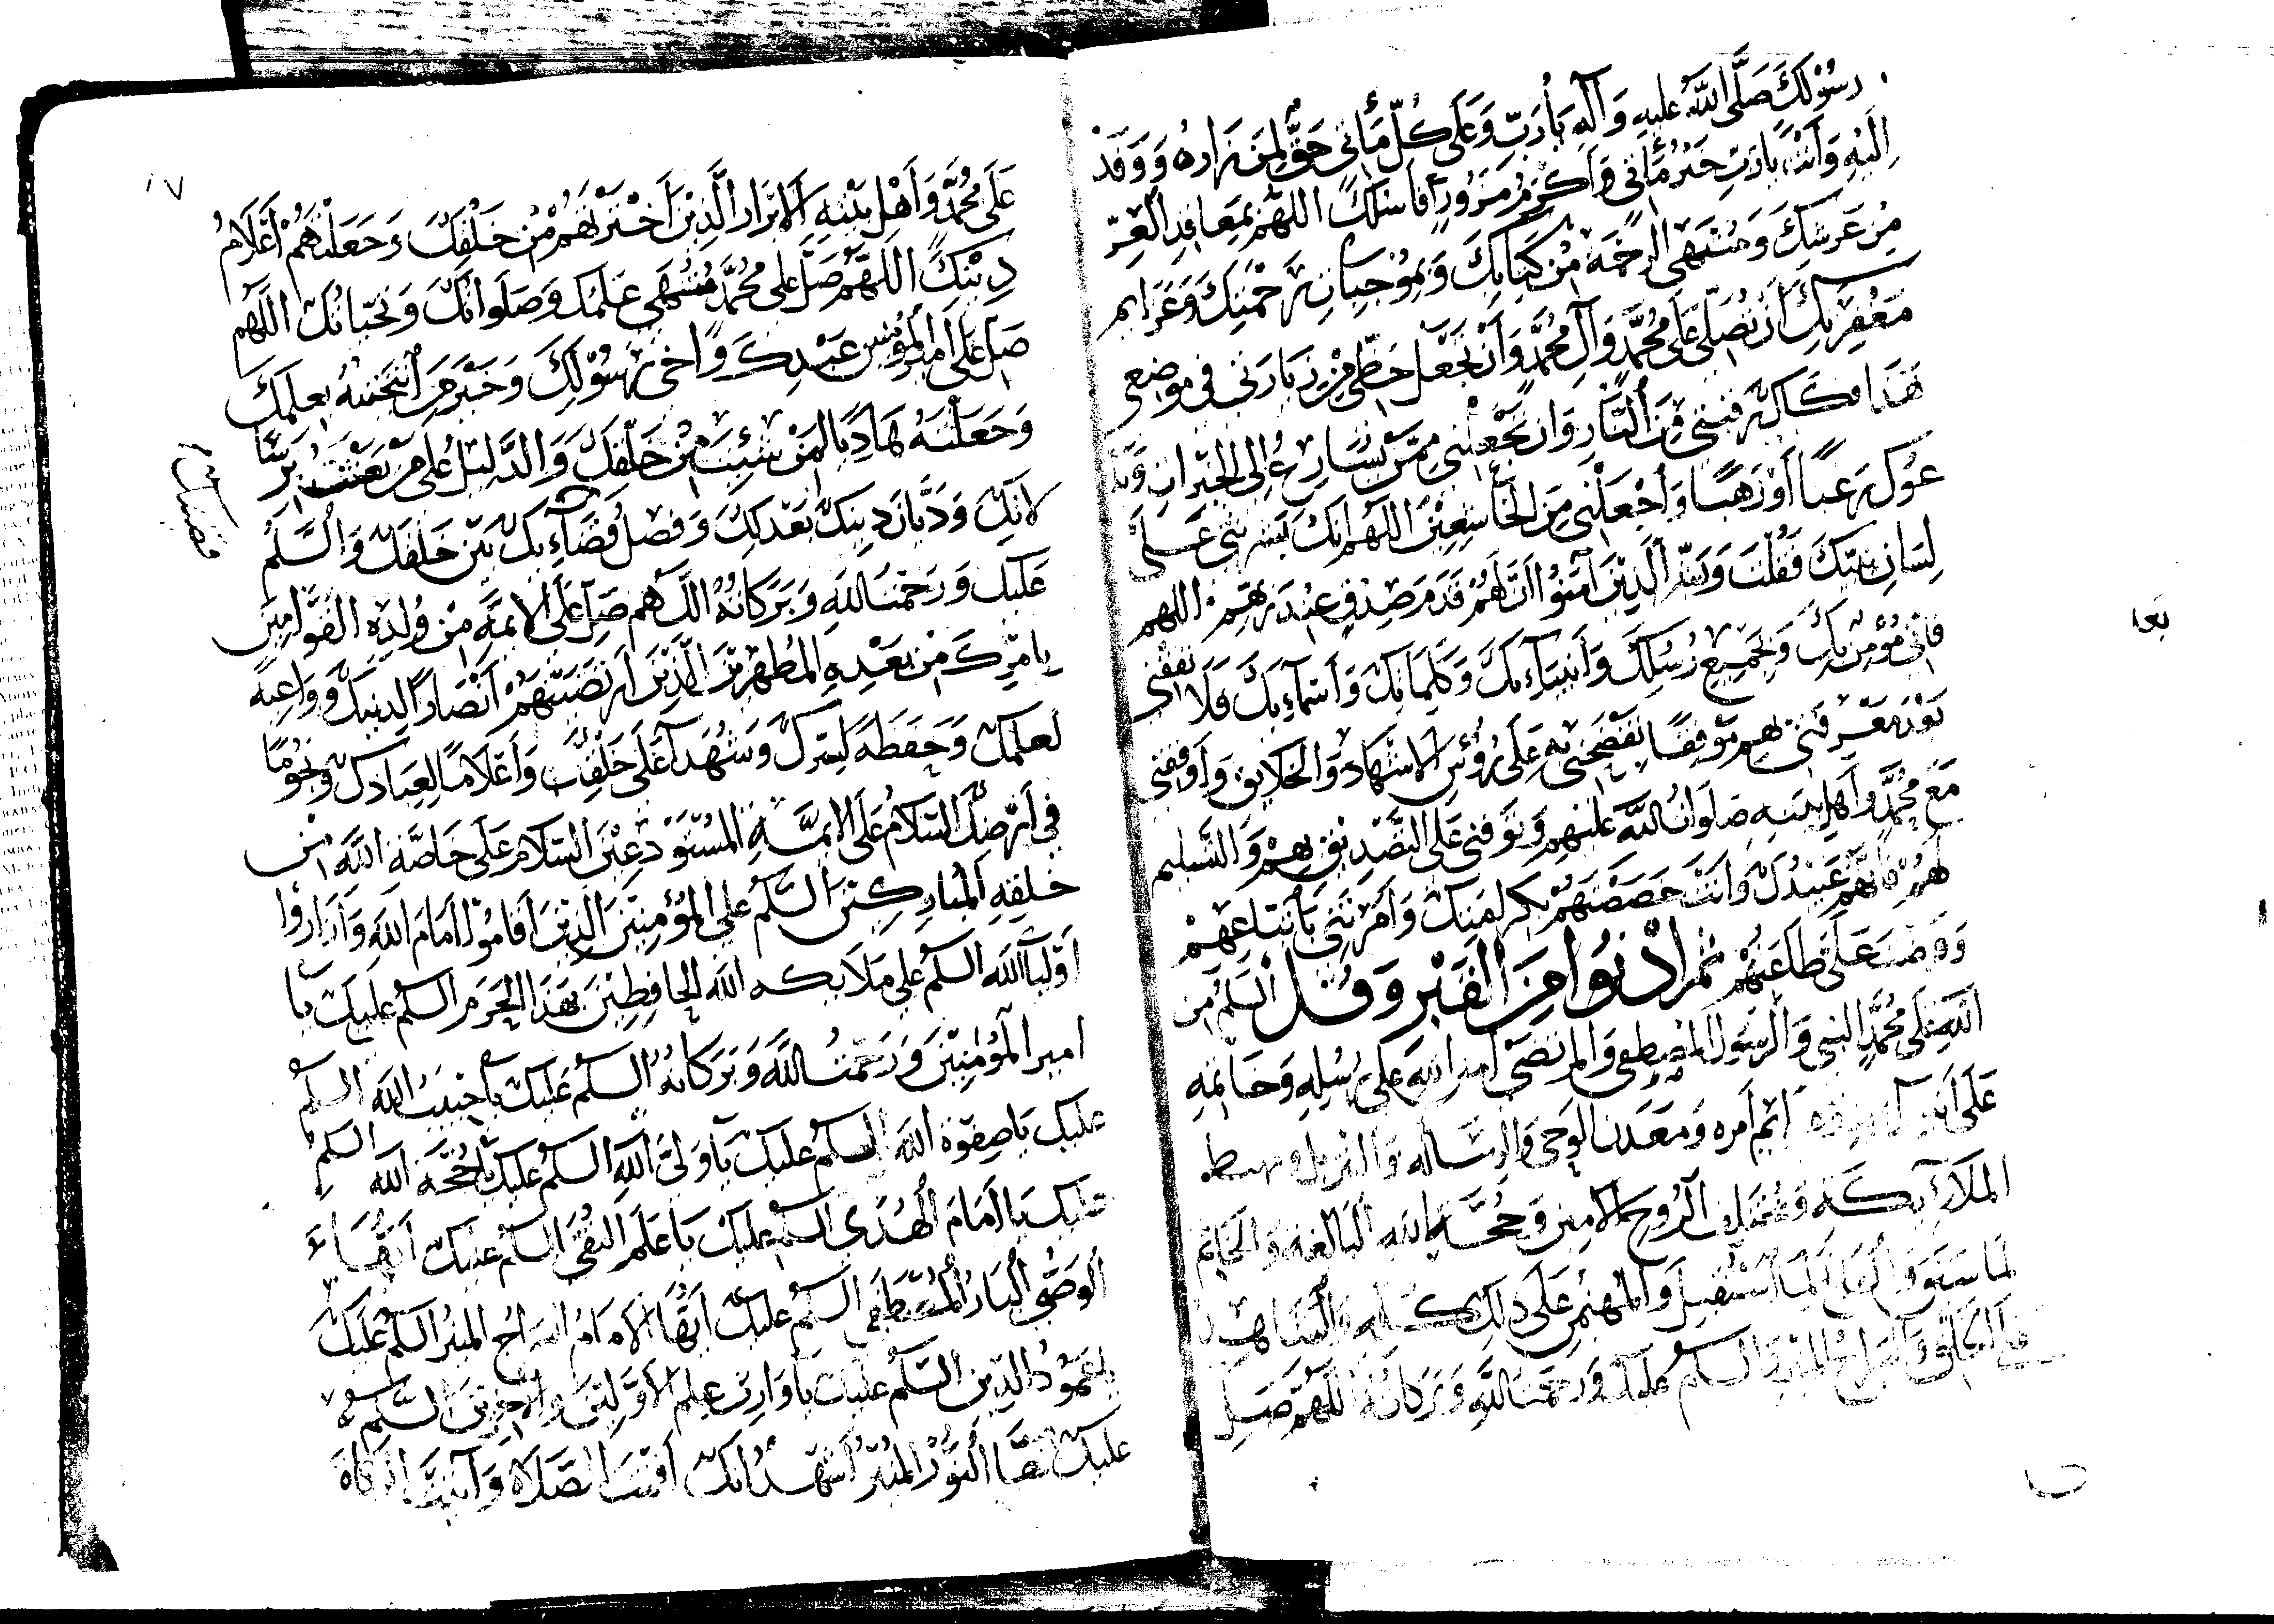 رسولك صلى الله عليه وآله يا رب وعلى كل مأتي حق لمن زاره ووفد
اليه وانت يا رب خير مأتي واكرم مزور فاسئلك اللهم بمعاقد العز
من عرشك ومنتهى الرحمة من كتابك وبموجبات رحمتك وعزايم
مغفرتك أن تصلي على محمد وآل محمد وأن تجعل حظي من زيارتي في موضعي
هذا فكاك رقبتي من النار وان تجعلني ممن يسارع الى الخيرات ويد
عوك رغبا او رهبا واجعلني من الخاشعين اللهم انك بشرتني على
لسان نبيك فقلت وبشر الذين آمنوا ان لهم قدم صدق عند ربهم اللهم
فاني مؤمن بك وبجميع رسلك وانبياءك وكلماتك واسماءك فلا تقفني
بعد معرفتي بهم موقفا تفضحني به على رؤس الاشهاد والخلايق واوقفني
مع محمد واهل بيته صلوات الله عليهم وتوفني على التصديق بهم والتسليم
لهم فانهم عبيدك وانت خصصتهم بكرامتك وامرتني باتباعهم
وفرضت علي طاعتهم ثم ادنوا من القبر وقل السلم من
الله على محمد النبي والرسول المصطفى والمرتضى امين الله على رسله وخاتمه
على امره ومعدن الوحي والرسالة والتنزيل ومهبط
الملائكة ومختلف الروح الامين وحجة الله البالغة والخاتم
لما سبق لما استقبل والمهيمن على ذلك كله والشاهد
السراج المنير السلم عليك ورحمة الله وبركاته اللهم صل
بعد
١٧
على محمد وأهل بيته الابرار الذين اخترتهم من خلقك وجعلتهم أعلام
دينك اللهم صل على محمد منتهى علمك وصلواتك وتحياتك اللهم
صل على امير المؤمنين عبدك واخي رسولك وخير من انتجبته بعلمك
وجعلته هاديا لمن شئت من خلقك والدليل على من بعثت برسا
لاتك وديان دينك بعدلك وفصل قضاءك بين خلقك والسلم
عليك ورحمة الله وبركاته اللهم صل على الائمة من ولده القوامين
بامرك من بعده المطهرين الذين ارتضيتهم أنصارا لدينك وواعية
لعلمك وحفظة لسرك وشهدا على خلقك واعلاما لعبادك ونجوما
في ارضك السلام على الائمة المستودعين السلام على خاصة الله من
خلقه المباركين السلم على المؤمنين الذين اقاموا امام الله وآزاروا
أوليآ الله السلم على ملايكه الله الحافظين بهذا الحرم السلم عليك يا
امير المؤمنين ورحمة الله وبركاته السلم عليك يا حبيب الله السلم
عليك يا صفوة الله السلم عليك يا ولي الله السلم عليك يا حجة الله السلم
عليك يا امام الهدى السلم عليك يا علم التقى السلم عليك ايها
الوصي البار المصطفى السلم عليك ايها الامام السراج المنير السلم عليك
يا عمود الدين السلم عليك يا وارث علم الاولين والآخرين السلم
عليك ايها النور المنير اشهد انك اقمت الصلاة وآتيت الزكاة